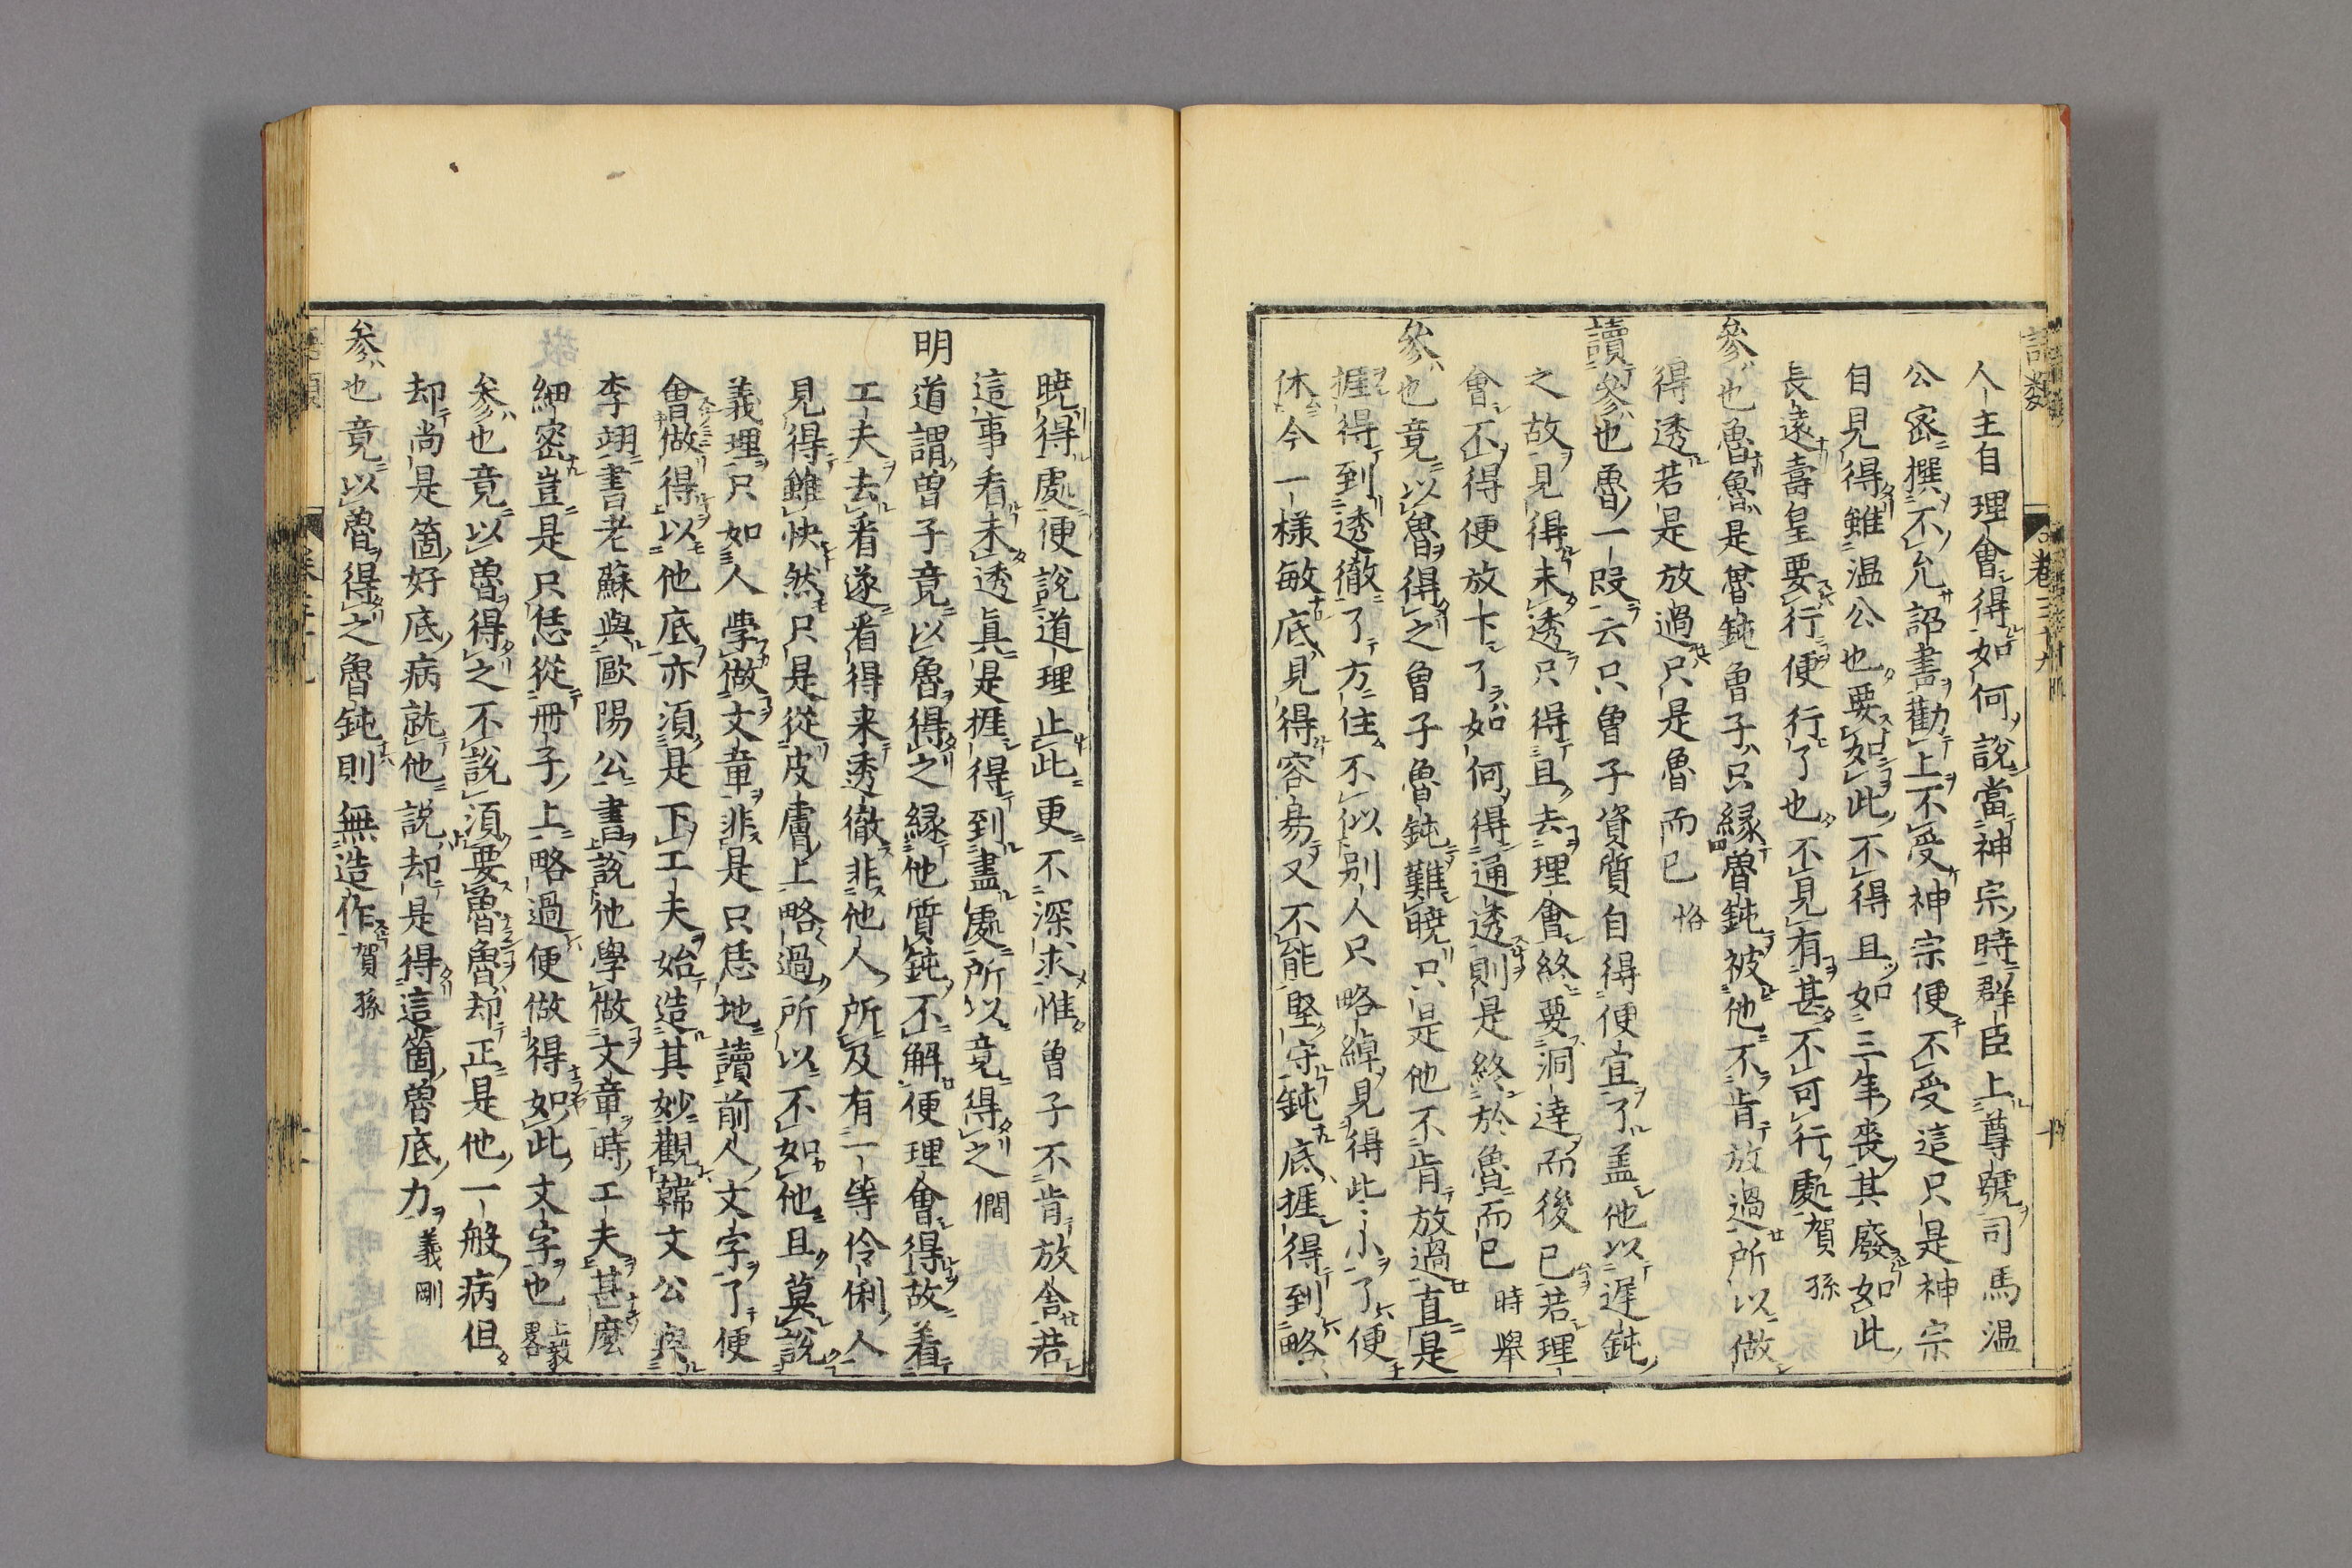 人主自理會得如何說當神宗時群臣上尊號司馬温
公密撰不允詔書勸上不受神宗便不受這只是神宗
自見得雖温公也要如此不得且如三年喪其廢如此
長遠壽皇要行便行了也不見有甚不可行處賀孫
參也魯魯是魯鈍曾子只緣魯鈍被他不肯放過所以做
得透若是放過只是魯而已恪
讀參也魯一段云只曾子資質自得便宜了盖他以遲鈍
之故見得未透只得且去理會終要洞達而後已若理
會不得便放下了如何得通透則是終於魯而已時舉
參也竟以魯得之曾子魯鈍難曉只是他不肯放過直是
捱得到透徹了方住不似别人只略綽見得些小了便
休今一樣敏底見得容易又不能堅守鈍底捱得到略
曉得處便說道理止此更不深求惟曾子不肯放舍若
這事看未透真是捱得到盡處所以竟得之僩
明道謂曽子竟以魯得之緣他質鈍不解便理會得故着
工夫去看遂看得来透徹非他人所及有一等伶俐人
見得雖快然只是從皮膚上略過所以不如他且莫說
義理只如人學做文章非是只恁地讀前人文字了便
會做得以他底亦須是下工夫始造其妙觀韓文公與
李翊書老蘇與歐陽公書說他學做文章時工夫甚麽
細密豈是只恁從冊子上略過便做得如此文字也上毅畧
參也竟以魯得之不說須要魯魯却正是他一般病但
却尚是箇好底病就他說却是得這箇魯底力義剛
参也竟以魯得之魯鈍則無造作賀孫